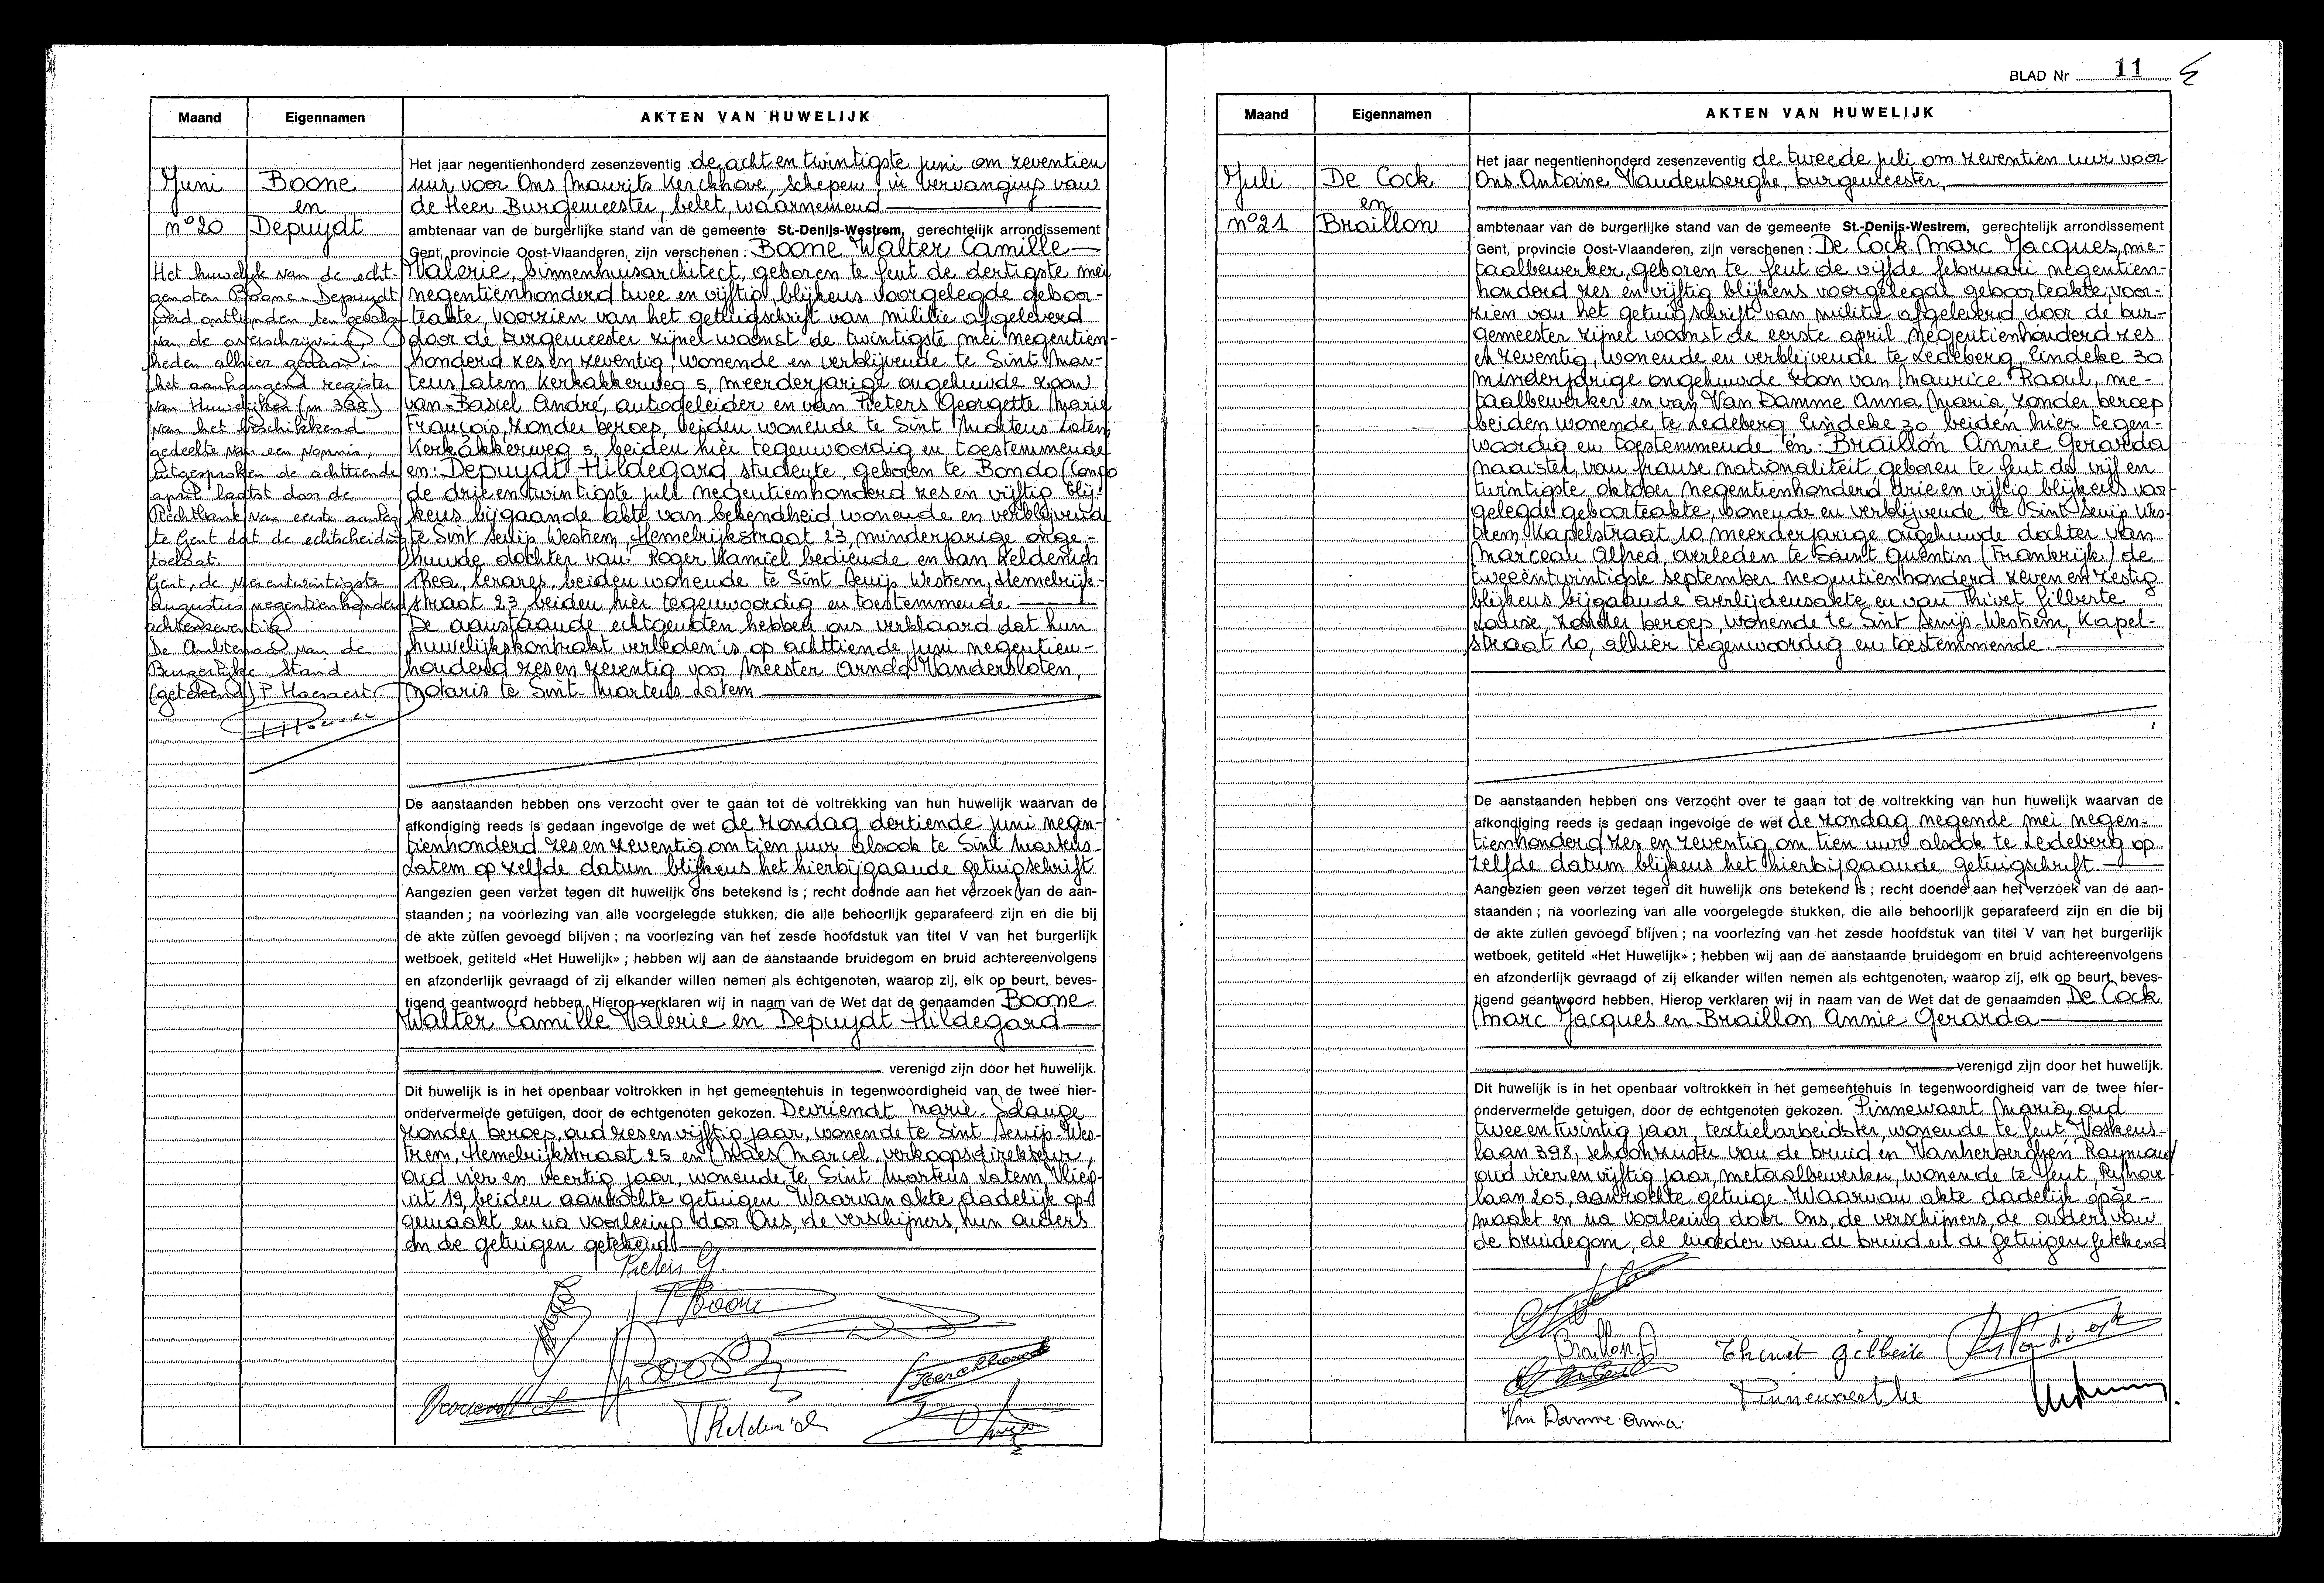 Maand
Eigennamen
AKTEN VAN HUWELIJK
Juni
Boone
en
nº20
Depuydt
Het huwelijk van de echt-
genoten Boone - Depuydt
werd ontbonden ten gevolge
van de overschrijving,
heden alhier gedaan in
het aanhangend register
van Huwelijken (nr 368)
van het beschikkend
gedeelte van een vonnis,
uitgesproken de achttiende
april laatst door de
Rechtbank van eerste aanleg
te Gent dat de echtscheiding
toelaat.
Gent, de vierentwintigste
augustus negentienhonderd
achtenzeventig
De Ambtenaar van de
Burgerlijke Stand
(getekend) P. Haesaert
Het jaar negentienhonderd zesenzeventig de acht en twintigste juni om zeventien
uur voor Ons Maurits Kerckhove, schepen in vervanging van
de Heer Burgemeester, belet, waarnemend
ambtenaar van de burgerlijke stand van de gemeente St.-Denijs-Westrem, gerechtelijk arrondissement
Gent, provincie Oost-Vlaanderen, zijn verschenen : Boone Walter Camille
Valerie, binnenhuisarchitect, geboren te Gent de dertigste mei
negentienhonderd twee en vijftig blijkens voorgelegde geboor-
teakte, voorzien van het getuigschrift van militie afgeleverd
door de burgemeester zijner woonst de twintigste mei negentien-
honderd zes en zeventig, wonende en verblijvende te Sint Mar-
tens Latem Kerkakkerweg 5, meerderjarige ongehuwde zoon
van Basiel André, autogeleider en van Pieters Georgette Marie
François, zonder beroep, beiden wonende te Sint Martens Latem
Kerkakkerweg 5, beiden hier tegenwoordig en toestemmende
en: Depuydt Hildegard studente, geboren te Bondo (Congo
de drie en twintigste juli negentienhonderd zes en vijftig blij-
kens bijgaande akte van bekendheid wonende en verblijvend
te Sint Denijs Westrem, Hemelrijkstraat 23, minderjarige onge-
huwde dochter van Roger Kamiel bediende en van Keldenich
Thea, lerares, beiden wonende te Sint Denijs Westrem, Hemelrijk-
straat 23 beiden hier tegenwoordig en toestemmende
De aanstaande echtgenoten hebben ons verklaard dat hun
huwelijkskontrakt verleden is op achttiende juni negentien-
honderd zes en zeventig voor Meester Arnold Vandersloten,
Notaris te Sint-Martens-Latem
De aanstaanden hebben ons verzocht over te gaan tot de voltrekking van hun huwelijk waarvan de
afkondiging reeds is gedaan ingevolge de wet de zondag dertiende juni negen-
tienhonderd zes en zeventig om tien uur alsook te Sint Martens-
Latem op zelfde datum blijkens het hierbijgaande getuigschrift
Aangezien geen verzet tegen dit huwelijk ons betekend is ; recht doende aan het verzoek van de aan-
staanden ; na voorlezing van alle voorgelegde stukken, die alle behoorlijk geparafeerd zijn en die bij
de akte zullen gevoegd blijven ; na voorlezing van het zesde hoofdstuk van titel V van het burgerlijk
wetboek, getiteld «Het Huwelijk» ; hebben wij aan de aanstaande bruidegom en bruid achtereenvolgens
en afzonderlijk gevraagd of zij elkander willen nemen als echtgenoten, waarop zij, elk op beurt, beves-
tigend geantwoord hebben. Hierop verklaren wij in naam van de Wet dat de genaamden Boone
Walter Camille Valerie en Depuydt Hildegard
verenigd zijn door het huwelijk.
Dit huwelijk is in het openbaar voltrokken in het gemeentehuis in tegenwoordigheid van de twee hier-
ondervermelde getuigen, door de echtgenoten gekozen. Devriendt Marie-Solange
zonder beroep, oud zes en vijftig jaar, wonende te Sint Denijs-Wes-
trem, Hemelrijkstraat 25 en Maes Marcel, verkoopsdirekteur,
oud vier en veertig jaar, wonende te Sint Martens Latem Vlieg-
uit 19, beiden aanzochte getuigen. Waarvan akte dadelijk op-
gemaakt en na voorlezing door Ons, de verschijners, hun ouders
en de getuigen getekend
Pieters G.
Boone
Boone
T Keldenich
BLAD Nr 11
Maand
Eigennamen
AKTEN VAN HUWELIJK
Juli
De Cock
en
nº21
Braillon
Het jaar negentienhonderd zesenzeventig de tweede juli om zeventien uur voor
Ons Antoine Vandenberghe, burgemeester,
ambtenaar van de burgerlijke stand van de gemeente St.-Denijs-Westrem, gerechtelijk arrondissement
Gent, provincie Oost-Vlaanderen, zijn verschenen : De Cock Marc Jacques, me-
taalbewerker, geboren te Gent de vijfde februari negentien-
honderd zes en vijftig blijkens voorgelegde geboorteakte, voor-
zien van het getuigschrift van militie afgeleverd door de bur-
gemeester zijner woonst de eerste april negentienhonderd zes
en zeventig, wonende en verblijvende te Ledeberg, Eindeke 30
minderjarige ongehuwde zoon van Maurice Raoul, me-
taalbewerker en van Van Damme Anna Maria, zonder beroep
beiden wonende te Ledeberg Eindeke 30 beiden hier tegen-
woordig en toestemmende en: Braillon Annie Gerarda
naaister, van franse nationaliteit geboren te Gent de vijf en
twintigste oktober negentienhonderd drie en vijftig blijkens voor-
gelegde geboorteakte, wonende en verblijvende te Sint Denijs Wes-
trem, Kapelstraat 10, meerderjarige ongehuwde dochter van
Marceau Alfred, overleden te Saint Quentin (Frankrijk) de
tweeëntwintigste september negentienhonderd zeven en zestig
blijkens bijgaande overlijdensakte en van Thivet Gilberte
Louise, zonder beroep, wonende te Sint Denijs-Westrem, Kapel-
straat 10, alhier tegenwoordig en toestemmende.
De aanstaanden hebben ons verzocht over te gaan tot de voltrekking van hun huwelijk waarvan de
afkondiging reeds is gedaan ingevolge de wet de zondag negende mei negen-
tienhonderd zes en zeventig om tien uur alsook te Ledeberg op
zelfde datum blijkens het hierbijgaande getuigschrift.
Aangezien geen verzet tegen dit huwelijk ons betekend is ; recht doende aan het verzoek van de aan-
staanden ; na voorlezing van alle voorgelegde stukken, die alle behoorlijk geparafeerd zijn en die bij
de akte zullen gevoegd blijven ; na voorlezing van het zesde hoofdstuk van titel V van het burgerlijk
wetboek, getiteld «Het Huwelijk» ; hebben wij aan de aanstaande bruidegom en bruid achtereenvolgens
en afzonderlijk gevraagd of zij elkander willen nemen als echtgenoten, waarop zij, elk op beurt, beves-
tigend geantwoord hebben. Hierop verklaren wij in naam van de Wet dat de genaamden De Cock
Marc Jacques en Braillon Annie Gerarda
verenigd zijn door het huwelijk.
Dit huwelijk is in het openbaar voltrokken in het gemeentehuis in tegenwoordigheid van de twee hier-
ondervermelde getuigen, door de echtgenoten gekozen. Pinnewaert Maria, oud
twee en twintig jaar, textielarbeidster, wonende te Gent Voskens-
laan 398, schoonzuster van de bruid en Vanherberghen Raymond
oud vier en vijftig jaar, metaalbewerker, wonende te Gent, Rijhove-
laan 205, aanzochte getuige. Waarvan akte dadelijk opge-
maakt en na voorlezing door Ons, de verschijners, de ouders van
de bruidegom, de moeder van de bruid en de getuigen getekend
Braillon A
Thivet Gilberte
Van Damme Anna